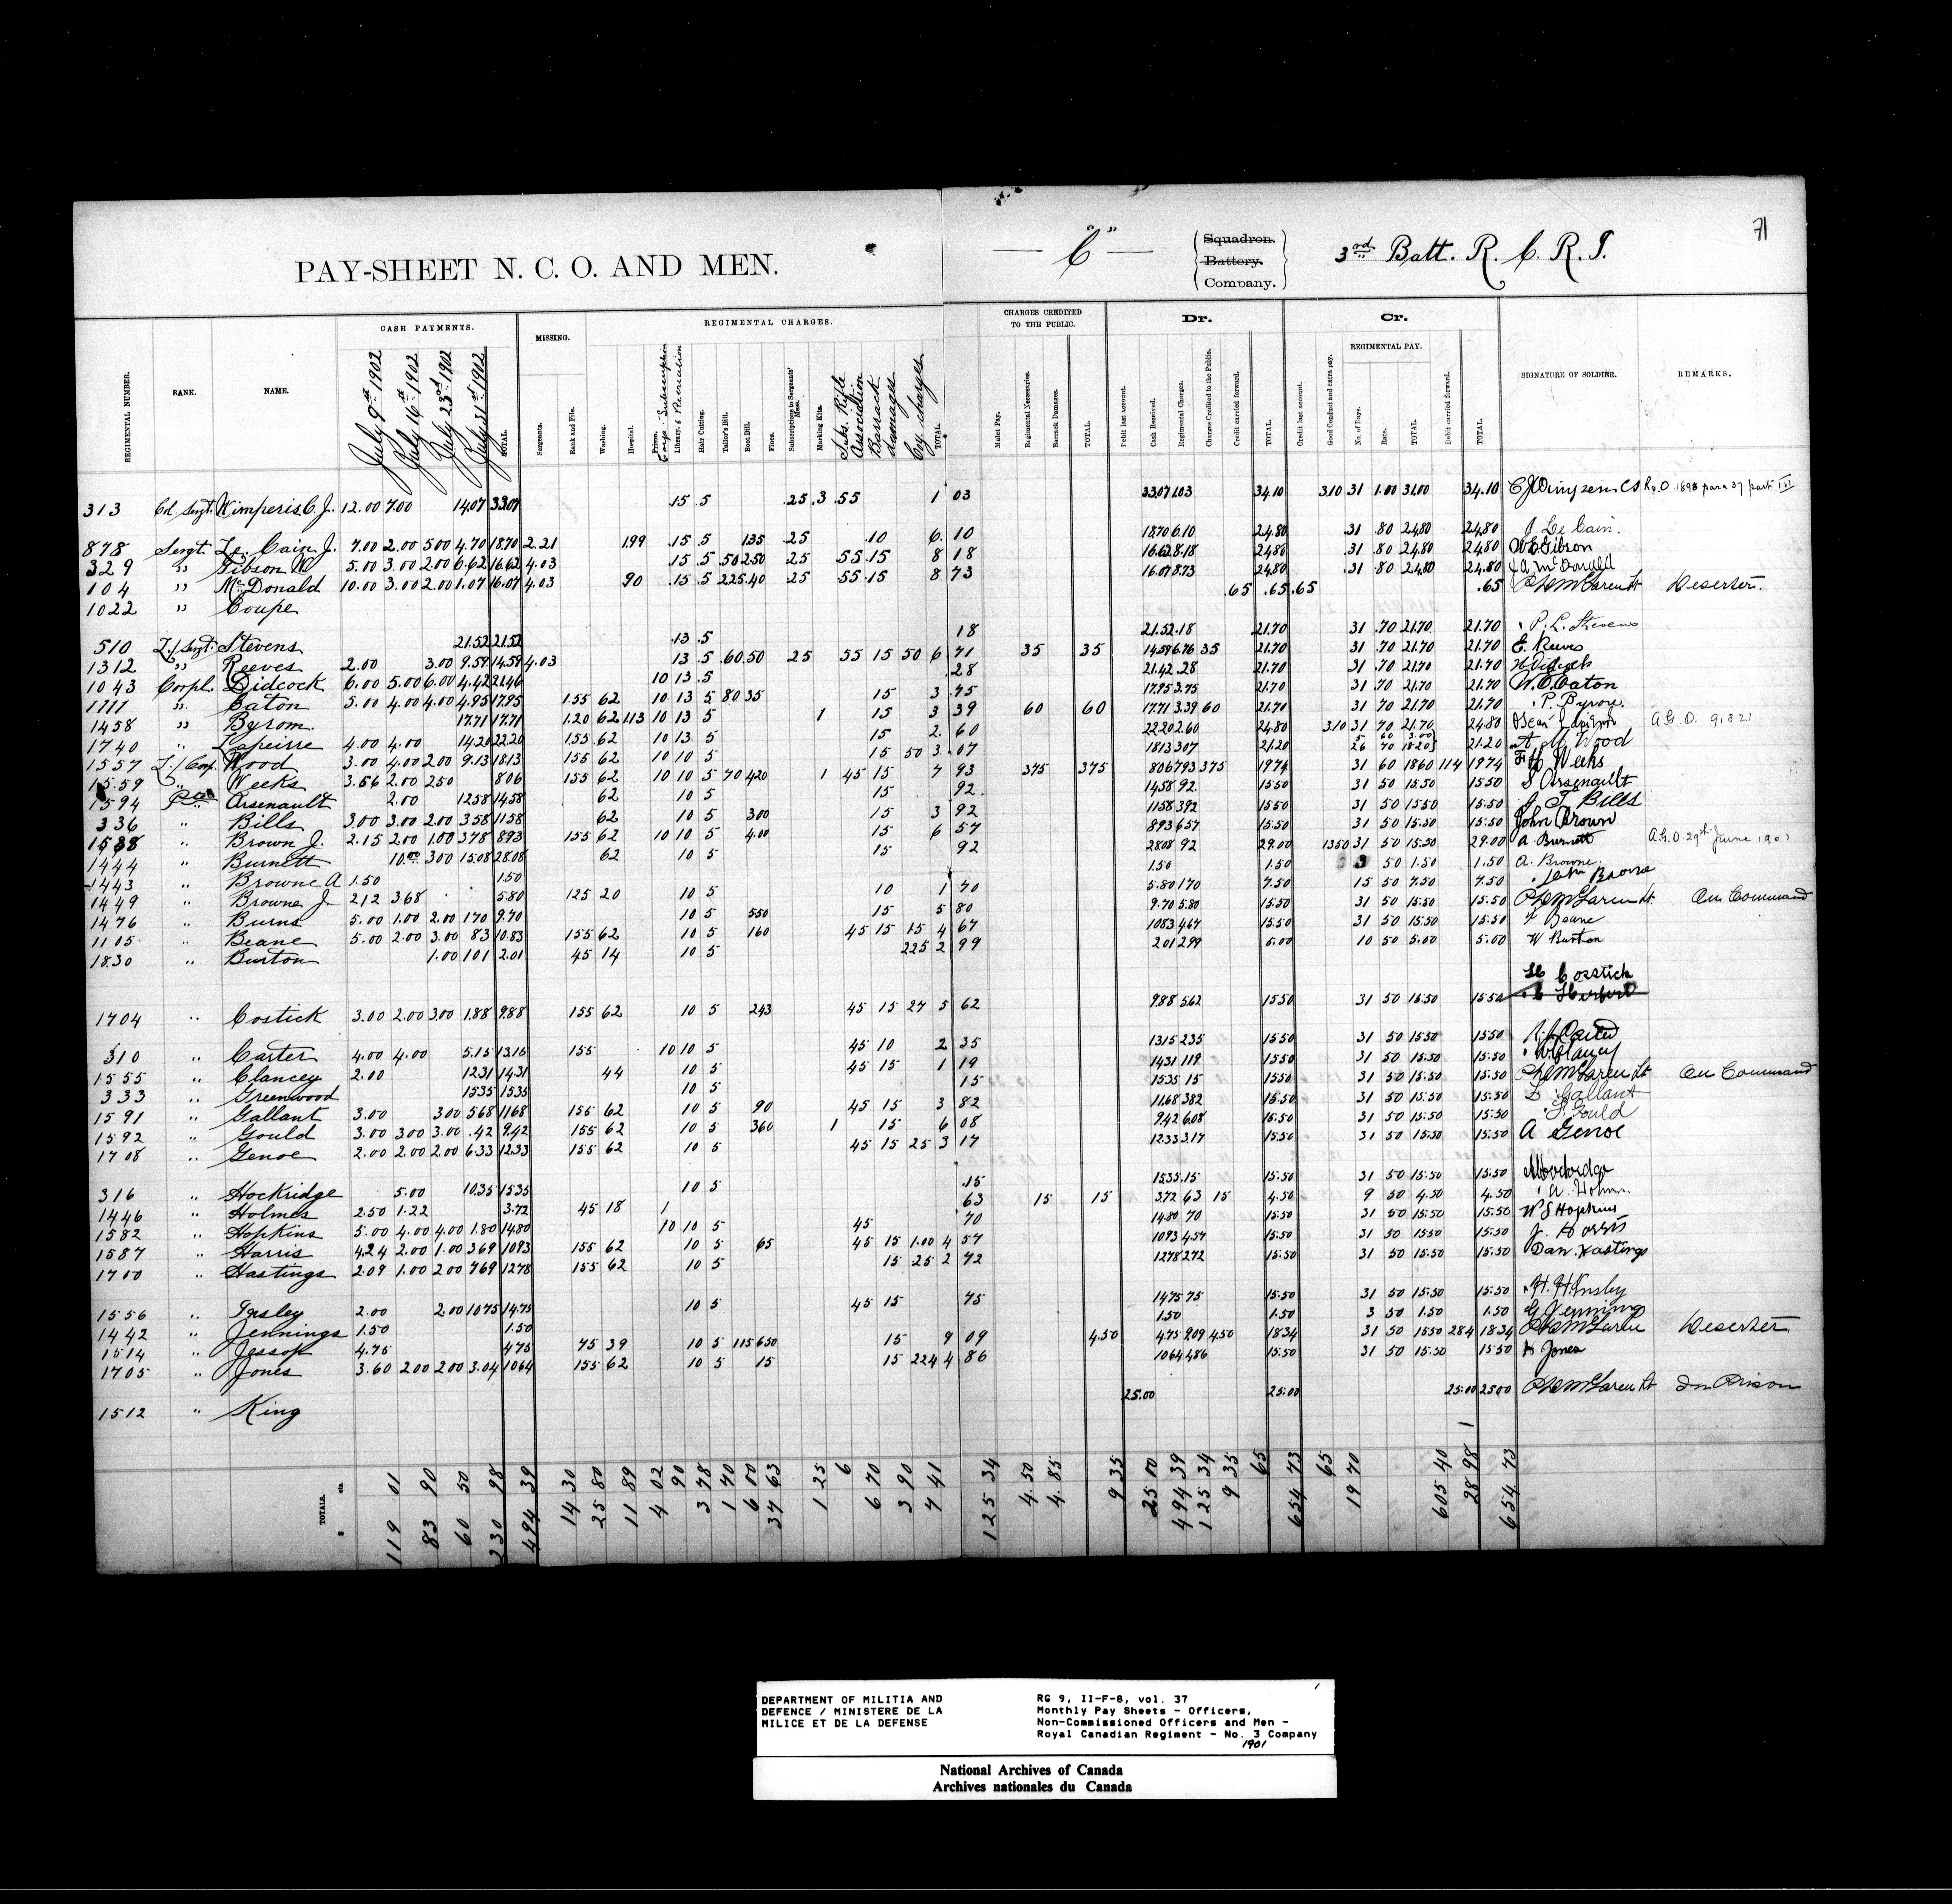 71
PAY-SHEET N. C. O. AND MEN.
— "C" —
Squadron.
Battery.
Company.
3rd Batt. R. C. R. I.
REGIMENTAL NUMBER.
RANK.
NAME.
CASH PAYMENTS.
July 9th 1902
July 16th 1902
July 23rd 1902
July 31st 1902
TOTAL.
MISSING.
Sergeants.
Rank and File.
REGIMENTAL CHARGES.
Washing.
Hospital.
Library, & Recreation
Hair Cutting.
Tailor's Bill.
Boot Bill.
Fines.
Subscriptions to Sergeants' Mess.
Marking Kits.
Subs. Rifle Association
Barrack damages
Coy charges
TOTAL.
CHARGES CREDITED TO THE PUBLIC.
Mulct Pay.
Regimental Necessaries.
Barrack Damages.
TOTAL.
Dr.
Debit last account.
Cash Received.
Regimental Charges.
Charges Credited to the Public.
Credit carried forward.
TOTAL.
Cr.
Credit last account.
Good Conduct and extra pay.
REGIMENTAL PAY.
No. of Days.
Rate.
TOTAL.
Debit carried forward.
TOTAL.
SIGNATURE OF SOLDIER.
REMARKS.
313 Col. Sergt. Wimperis C. J. 12.00 7.00 14.07 33.07 .15 .5 .25 .3 .55 1 03 33.07 1.03 34.10 3.10 31 1.00 31.00 34.10
878 Sergt. Le Cain J. 7.00 2.00 5.00 4.70 18.70 2.21 1.99 .15 .5 1.35 .25 .10 6. 10 18.70 6.10 24.80 31 .80 24.80 24.80 J. Le Cain.
329 " Gibson W 5.00 3.00 2.00 6.62 16.62 4.03 .15 .5 .50 2.50 .25 .55 .15 8 18 16.62 8.18 24.80 31 .80 24.80 24.80 W E Gibson
104 " McDonald 10.00 3.00 2.00 1.07 16.07 4.03 .90 .15 .5 2.25 .40 .25 .55 .15 8 73 16.07 8.73 24.80 31 .80 24.80 24.80 J A McDonald
1022 " Coupe .65 .65 .65 .65 Deserter.
510 L/Sergt. Stevens 21.52 21.52 .13 .5 18 21.52 .18 21.70 31 .70 21.70 21.70 P. L. Stevens
1312 " Reeves 2.00 3.00 9.59 14.59 4.03 13 .5 .60 .50 .25 55 15 50 6 71 35 35 14.59 6.76 35 21.70 31 .70 21.70 21.70 E. Reeves
1043 Corpl. Didcock 6.00 5.00 6.00 4.42 21.42 10 13 .5 .28 21.42 .28 21.70 31 .70 21.70 21.70
1711 " Eaton 5.00 4.00 4.00 4.95 17.95 155 62 10 13 5 80 35 15 3 .75 17.95 3.75 21.70 31 .70 21.70 21.70 W. E. Eaton
1458 " Byrom. 17.71 17.71 1.20 62 113 10 13 5 1 15 3 39 60 60 17.71 3.39 60 21.70 31 70 21.70 21.70 P. Byrom.
1740 " Lapeirre 4.00 4.00 14.20 22.20 155 62 10 13 5 15 2. 60 22.20 2.60 24.80 3.10 31 70 21.70 24.80
1557 L/Corp. Wood 3.00 4.00 2.00 9.13 18.13 155 62 10 10 5 15 50 3 .07 18.13 3.07 21.20 26 70 18.20 21.20 A. M. Wood
1559 " Weeks 3.56 2.00 2.50 8.06 155 62 10 10 5 70 420 1 45 15 7 93 375 375 8.06 7.93 3.75 19.74 31 60 18.60 1 14 19.74 Weeks
1594 Pte Arsenault 2.00 12.58 14.58 62 10 5 15 92. 14.58 92 15.50 31 50 15.50 15.50 S Arsenault
336 " Bills 3.00 3.00 2.00 3.58 11.58 62 10 5 300 15 3 92 11.58 3.92 15.50 31 50 15.50 15.50 J. T. Bills
1588 " Brown J. 2.15 2.00 1.00 3.78 8.93 155 62 10 10 5 4.00 15 6 57 8.93 6.57 15.50 31 50 15.50 15.50 John Brown
1444 " Burnett 10.00 3.00 15.08 28.08 62 10 5 15 92 28.08 92 29.00 13.50 31 50 15.50 29.00 A Burnett A.G.O. 29th June 1901
1443 " Browne A 1.50 1.50 1.50 1.50 3 50 1.50 1.50 A. Browne.
1449 " Browne J. 2.12 3.68 5.80 125 20 10 5 10 1 70 5.80 1.70 7.50 15 50 7.50 7.50
1476 " Burns 5.00 1.00 2.00 1.70 9.70 10 5 550 15 5 80 9.70 5.80 15.50 31 50 15.50 15.50 On Command
1105 " Beane 5.00 2.00 3.00 83 10.83 155 62 10 5 160 45 15 15 4 67 10.83 4.67 15.50 31 50 15.50 15.50 Beane
1830 " Burton 1.00 1.01 2.01 45 14 10 5 225 2 99 2.01 2.99 5.00 10 50 5.00 5.00 W Burton
1704 " Costick 3.00 2.00 3.00 1.88 9.88 155 62 10 5 243 45 15 27 5 62 9.88 5.62 15.50 31 50 15.50 15.50 Cosstick
310 " Carter 4.00 4.00 5.15 13.15 155 10 10 5 45 10 2 35 13.15 2.35 15.50 31 50 15.50 15.50
1555 " Clancey 2.00 12.31 14.31 44 10 5 45 15 1 19 14.31 1.19 15.50 31 50 15.50 15.50
333 " Greenwood 15.35 15.35 10 5 15 15.35 15 15.50 31 50 15.50 15.50 On Command
1591 " Gallant 3.00 3.00 5.68 11.68 155 62 10 5 90 45 15 3 82 11.68 3.82 15.50 31 50 15.50 15.50 Gallant
1592 " Gould 3.00 3.00 3.00 .42 9.42 155 62 10 5 360 1 15 6 08 9.42 6.08 15.50 31 50 15.50 15.50 Gould
1708 " Genoe 2.00 2.00 2.00 6.33 12.33 155 62 10 5 45 15 25 3 17 12.33 3.17 15.50 31 50 15.50 15.50 A Genoe
316 " Hockridge 5.00 10.35 15.35 10 5 .15 15.35 .15 15.50 31 50 15.50 15.50
1446 " Holmes 2.50 1.22 3.72 45 18 63 15 15 3.72 63 15 4.50 9 50 4.50 4.50
1582 " Hopkins 5.00 4.00 4.00 1.80 14.80 10 10 5 45 70 14.80 70 15.50 31 50 15.50 15.50 W S Hopkins
1587 " Harris 4.24 2.00 1.00 3.69 10.93 155 62 10 5 65 45 15 1.00 4 57 10.93 4.57 15.50 31 50 15.50 15.50 J. Harris
1700 " Hastings 2.09 1.00 2.00 7.69 12.78 155 62 10 5 15 25 2 72 12.78 2.72 15.50 31 50 15.50 15.50 Dan Hastings
1556 " Insley 2.00 2.00 10.75 14.75 10 5 45 15 75 14.75 75 15.50 31 50 15.50 15.50 H. H. Insley
1442 " Jennings 1.50 1.50 1.50 1.50 3 50 1.50 1.50 G Jennings
1514 " Jessop 4.75 4.75 75 39 10 5 115 650 15 9 09 4.50 4.75 9.09 4.50 18.34 31 50 15.50 2.84 18.34 Deserter
1705 " Jones 3.60 2.00 2.00 3.04 10.64 155 62 10 5 15 15 224 4 86 10.64 4.86 15.50 31 50 15.50 15.50 Jones
1512 " King 25.00 25.00 25.00 25.00 In Prison
TOTALS. $ cts. 119 01 83 90 60 50 230 98 494 39 14 30 25 80 11 89 4 02 90 3 78 1 70 6 00 37 63 1 25 6 6 70 3 90 7 41 125 34 4.50 4.85 9 35 25 00 494 39 125 34 9 35 65 654 73 65 19 70 605 40 28 98 654 73
DEPARTMENT OF MILITIA AND
DEFENCE / MINISTERE DE LA
MILICE ET DE LA DEFENSE
RG 9, II-F-8, vol. 37
Monthly Pay Sheets - Officers,
Non-Commissioned Officers and Men -
Royal Canadian Regiment - No. 3 Company
1901
National Archives of Canada
Archives nationales du Canada